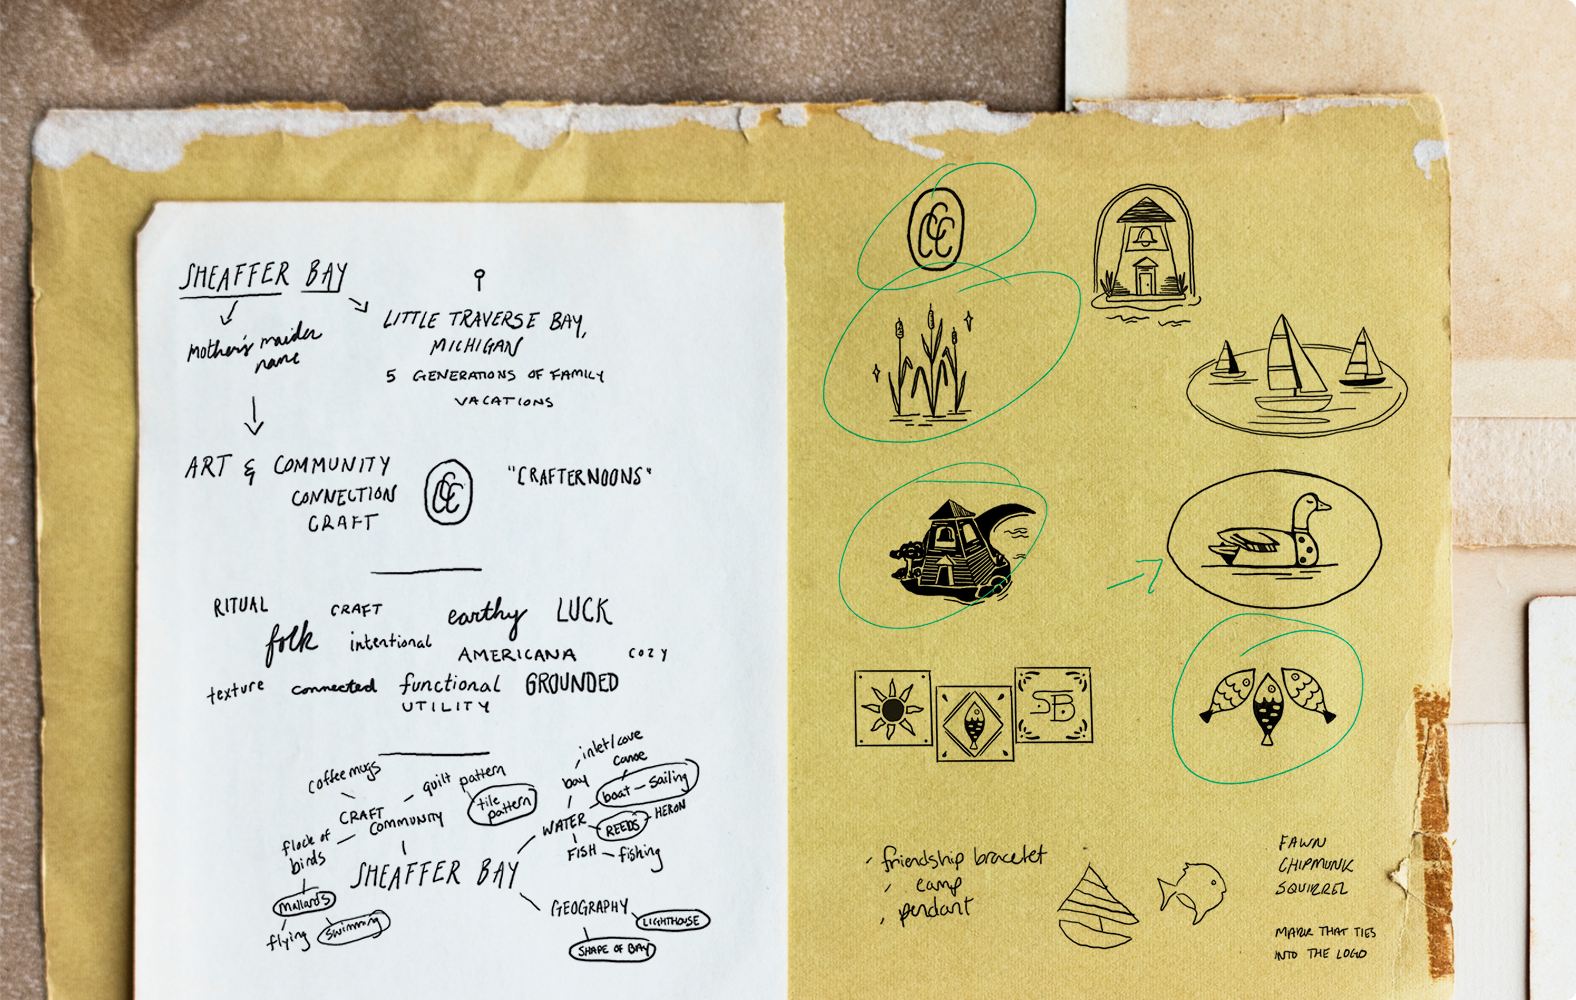 SHEAFFER BAY
mother's maiden
name
LITTLE TRAVERSE BAY,
MICHIGAN
5 GENERATIONS OF FAMILY
VACATIONS
ART & COMMUNITY
CONNECTION
CRAFT
CCC
"CRAFTERNOONS"
RITUAL
CRAFT
earthy
LUCK
folk
intentional
AMERICANA
COZY
texture
connected
functional
GROUNDED
UTILITY
coffee mugs
quilt pattern
tile
pattern
CRAFT
COMMUNITY
flock of
birds
mallards
flying
swimming
SHEAFFER BAY
inlet/cove
canoe
bay
boat - sailing
WATER
REEDS
HERON
FISH
fishing
GEOGRAPHY
LIGHTHOUSE
SHAPE OF BAY
CCC
SB
friendship bracelet
camp
pendant
FAWN
CHIPMUNK
SQUIRREL
MARK THAT TIES
INTO THE LOGO